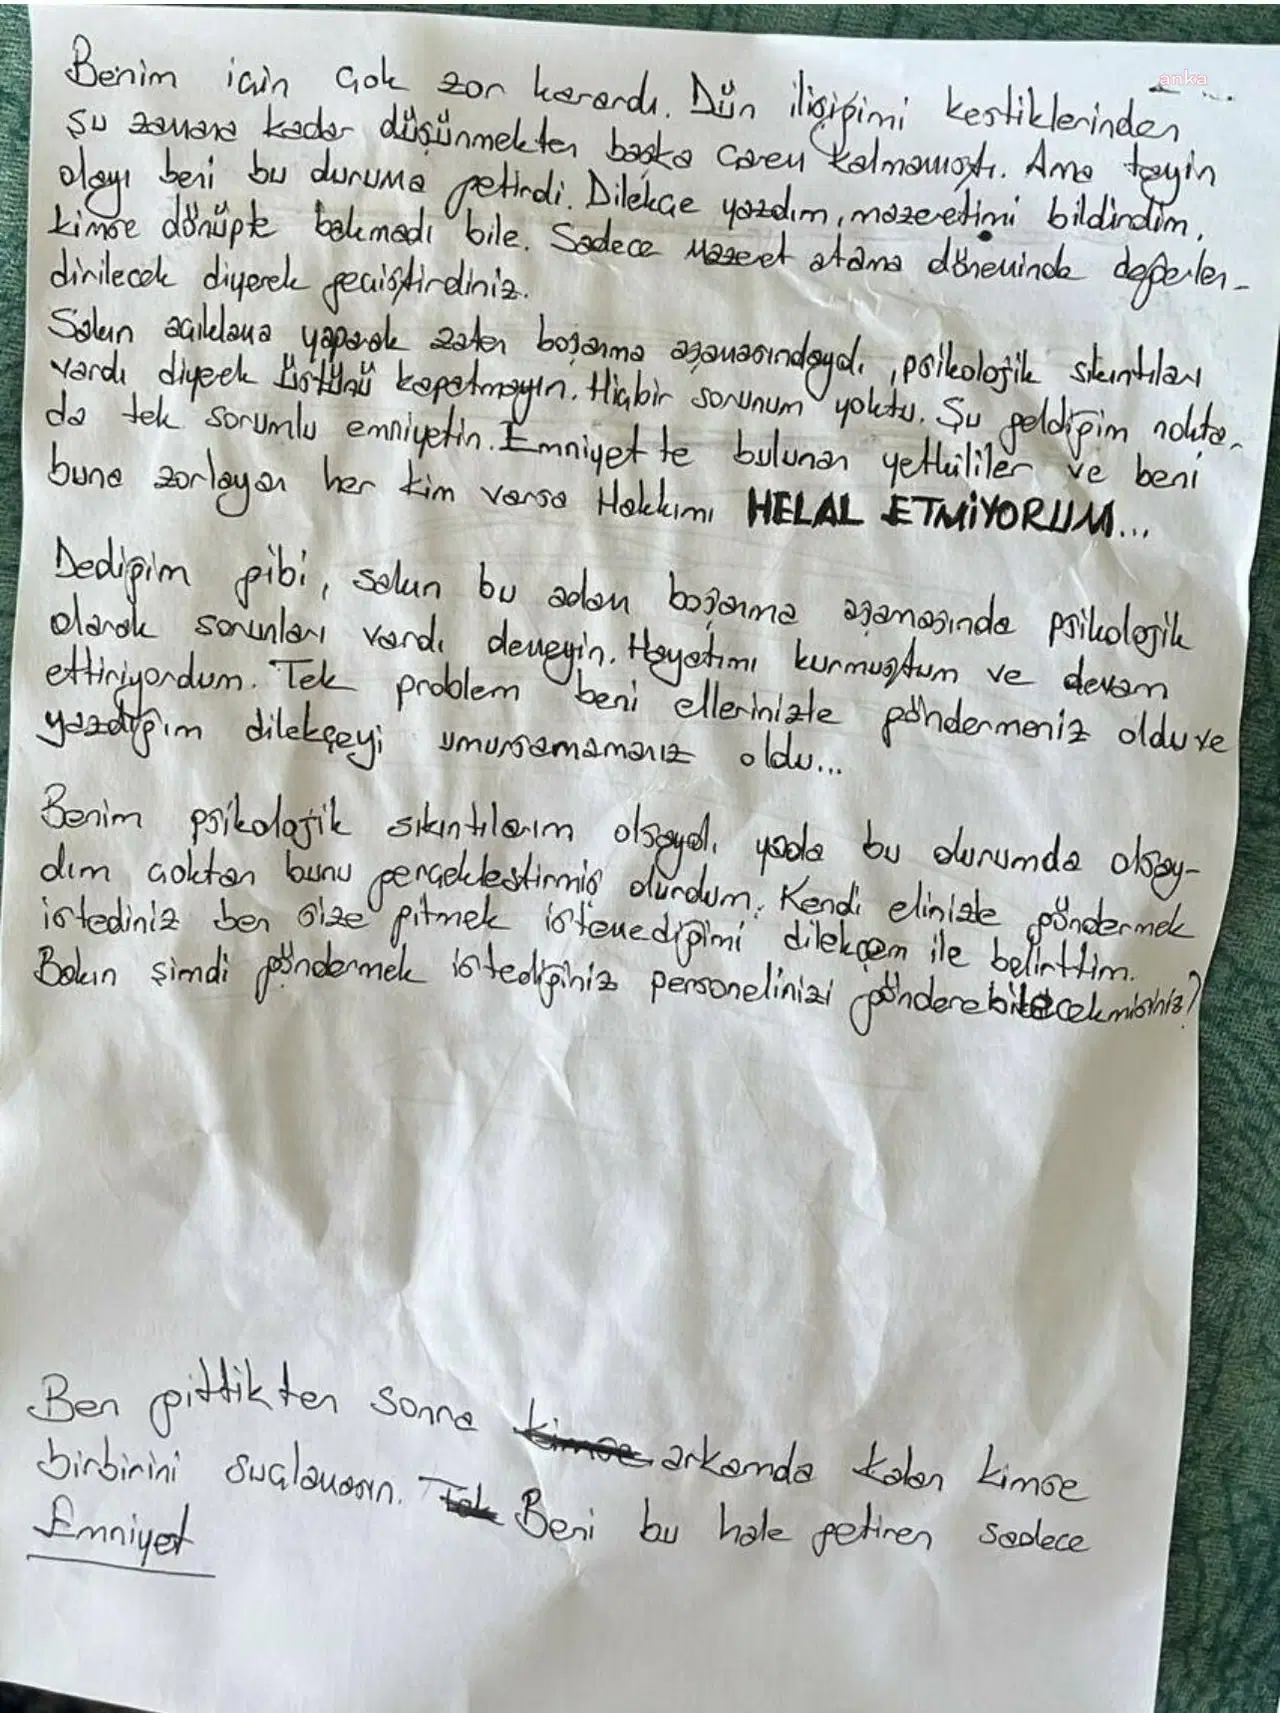 anka
Benim için çok zor karardı. Dün ilişiğimi kestiklerinden
şu zamana kadar düşünmekten başka çarem kalmamıştı. Ama tayin
olayı beni bu duruma getirdi. Dilekçe yazdım, mazeretimi bildirdim,
kimse dönüpte bakmadı bile. Sadece mazeret atama döneminde değerlen-
dirilecek diyerek geçiştirdiniz.
Sakın açıklama yaparak zaten boşanma aşamasındaydı, psikolojik sıkıntıları
vardı diyerek üstünü kapatmayın. Hiçbir sorunum yoktu. Şu geldiğim nokta-
da tek sorumlu emniyetin. Emniyet te bulunan yetkililer ve beni
buna zorlayan her kim varsa Hakkımı HELAL ETMİYORUM...
Dediğim gibi, sakın bu adam boşanma aşamasında psikolojik
olarak sorunları vardı demeyin. Hayatımı kurmuştum ve devam
ettiriyordum. Tek problem beni ellerinizle göndermeniz oldu ve
yazdığım dilekçeyi umursamamanız oldu...
Benim psikolojik sıkıntılarım olsaydı yada bu durumda olsay-
dım çoktan bunu gerçekleştirmiş olurdum. Kendi elinizle göndermek
istediniz ben size gitmek istemediğimi dilekçem ile belirttim.
Bakın şimdi göndermek istediğiniz personelinizi gönderebilecekmisiniz?
Ben gittikten sonra kimse arkamda kalan kimse
birbirini suçlamasın. Tek Beni bu hale getiren sadece
Emniyet